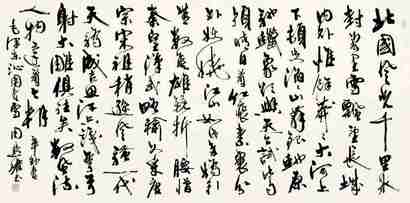 北國風光千里冰
封萬里雪飄望長城
内外惟餘莽莽大河上
下頓失滔滔山舞銀蛇原
馳蠟象欲與天公試比高
須晴日看紅裝素裹分
外妖嬈江山如此多嬌引
無數英雄競折腰惜
秦皇漢武略輸文采唐
宗宋祖稍遜風騷一代
天驕成吉思汗只識彎弓
射大雕俱往矣數風流
人物還看今朝
毛澤東沁園春雪